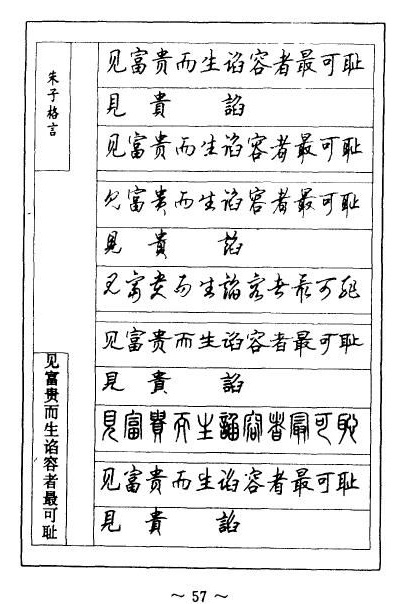 朱子格言
见富贵而生谄容者最可耻
見 貴 諂
见富贵而生谄容者最可耻
见富贵而生谄容者最可耻
見 貴 諂
见富贵而生谄容者最可耻
见富贵而生谄容者最可耻
見 貴 諂
見富貴而生諂容者最可恥
见富贵而生谄容者最可耻
見 貴 諂
见富贵而生谄容者最可耻
~ 57 ~